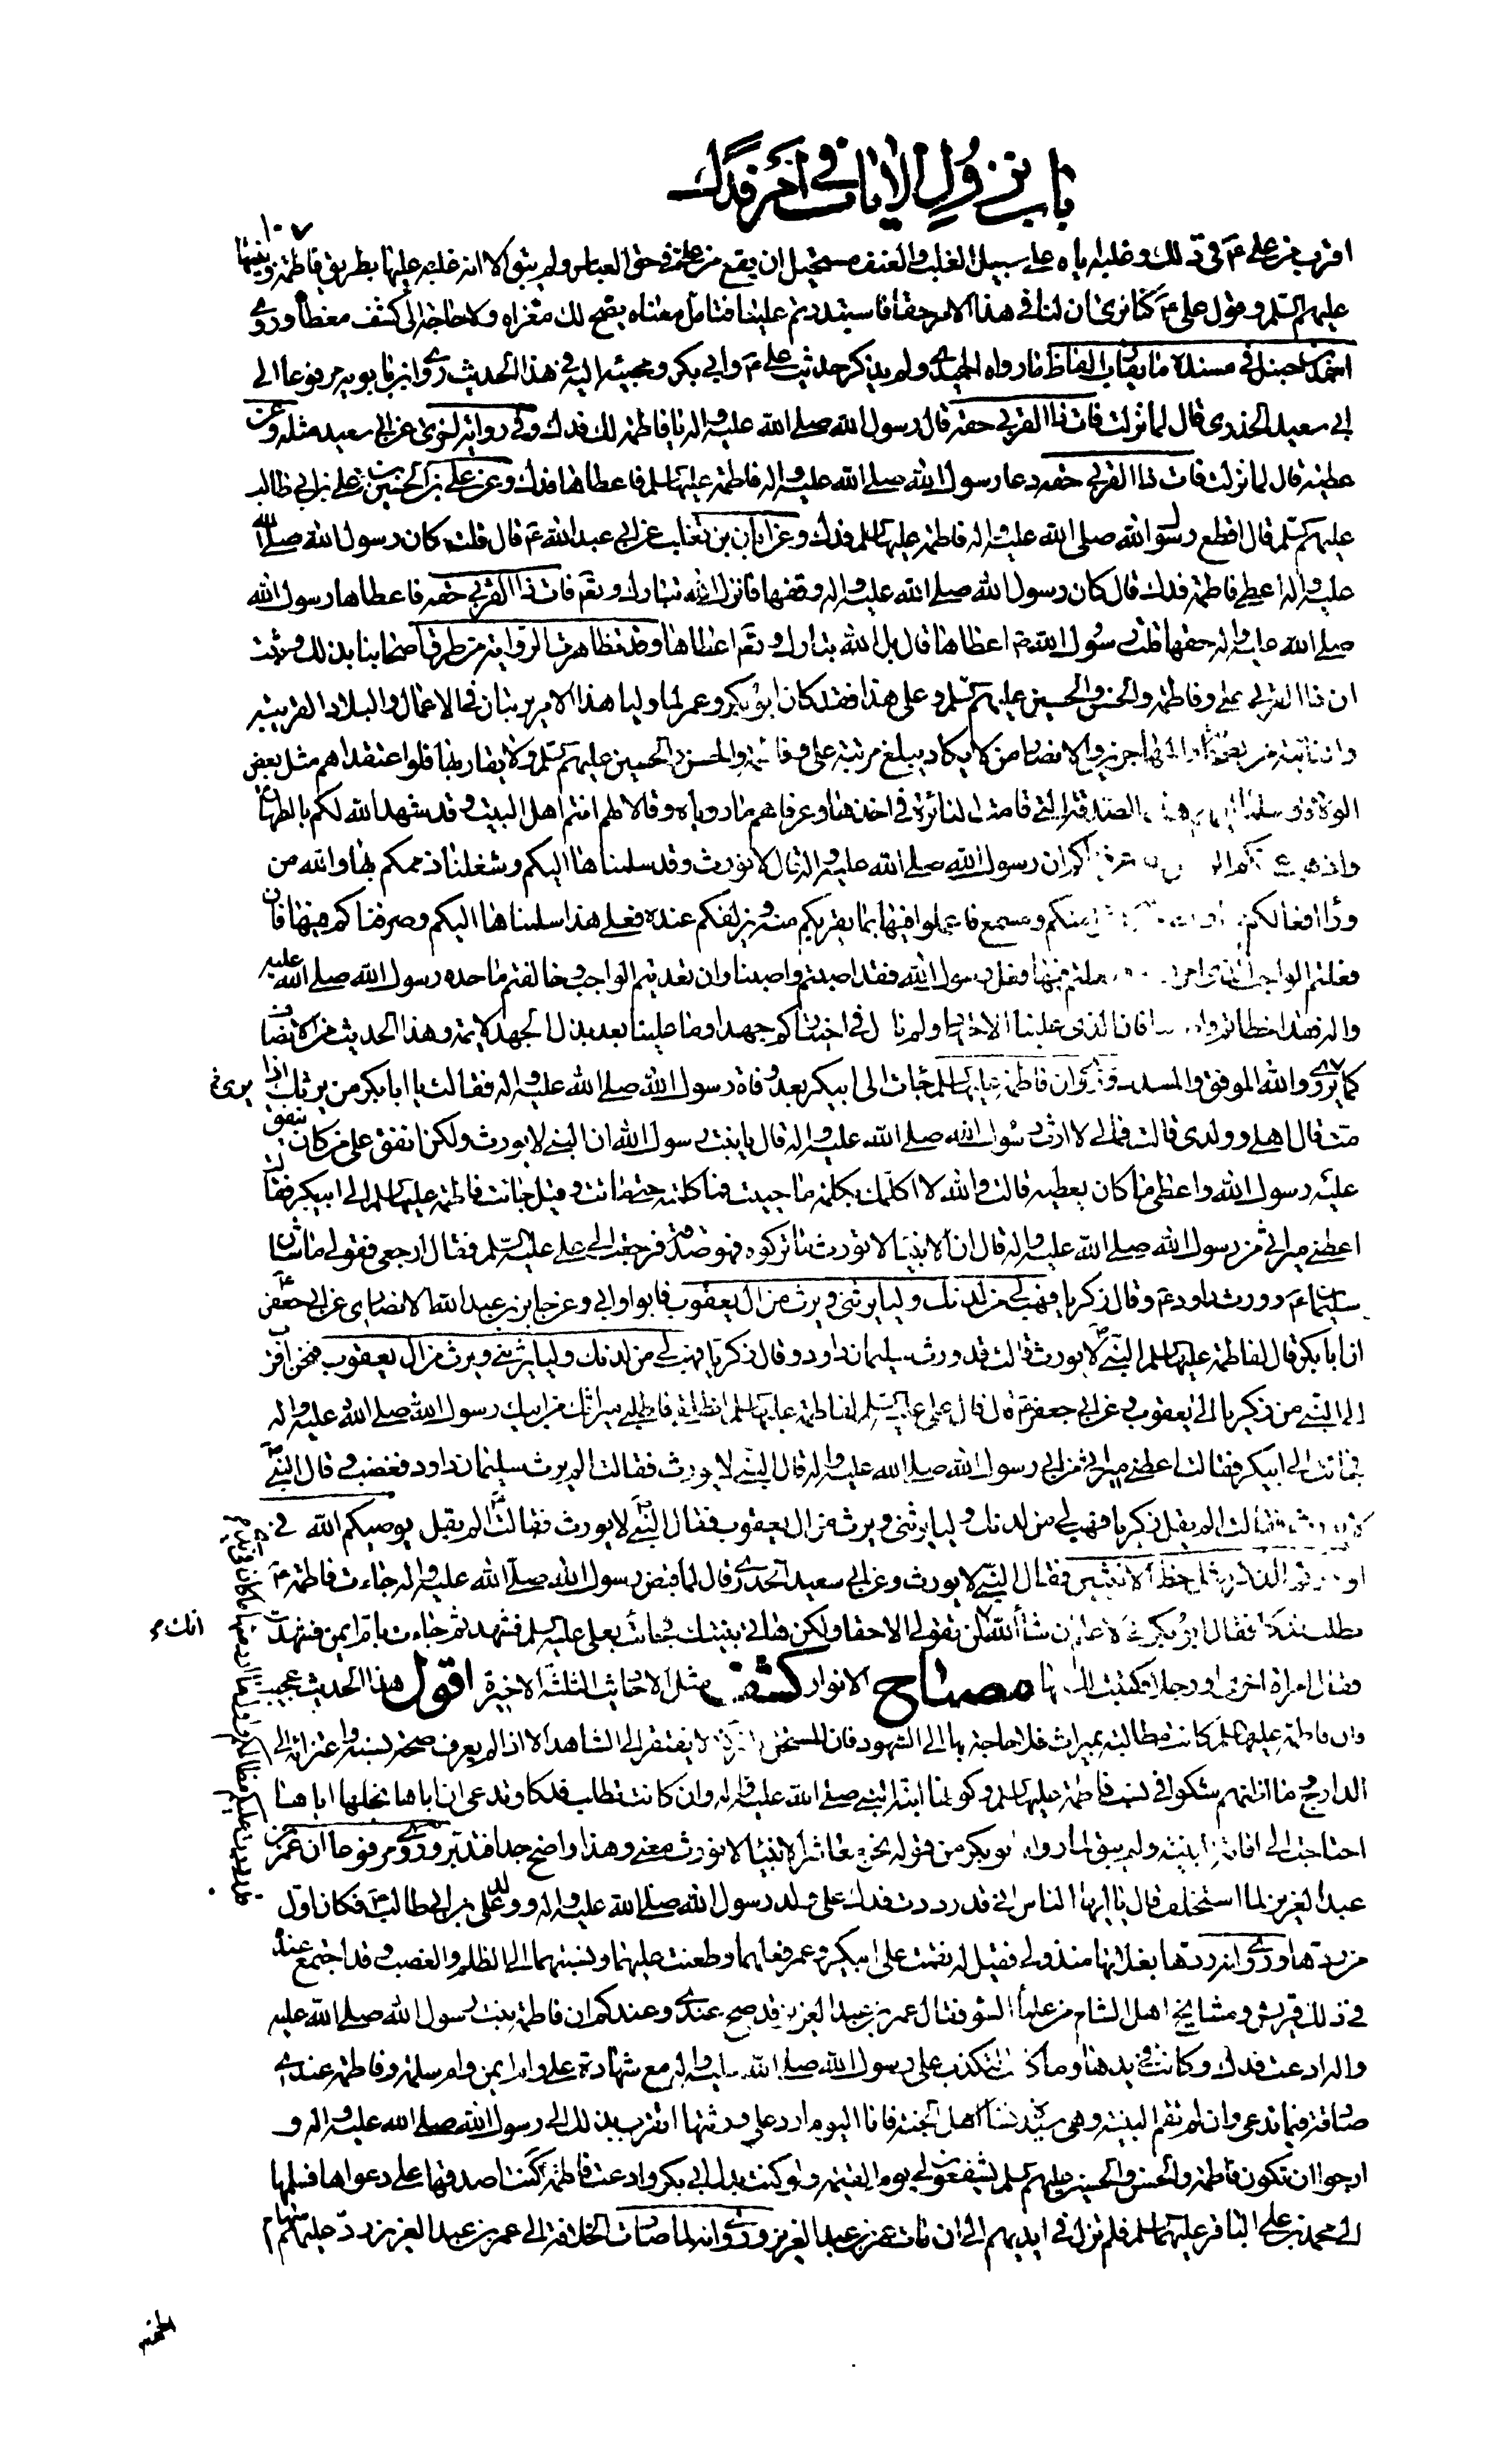 باب نزول الايات في امر فدك
١٠٧
اقرب من علي ع في ذلك وغلبه اياه على سبيل الغلب والعنف مستحيل ان يقع من علي في حق العباس ولم يبق الا انه غلبه عليها بطريق فاطمة وبنيها
عليهم السلم وقول علي ع كنا نرى ان لنا في هذا الامر حقا فاستبددتم علينا فتامل معناه يضح لك مغزاه ولا حاجة الى كشف مغطاه وروى
احمد بن حنبل في مسنده ما يقارب الفاظ ما رواه الحميدي ولم يذكر حديث علي ع وابي بكر ومجيئه اليه في هذا الحديث روى ابن بابويه مرفوعا الى
ابي سعيد الخدري قال لما نزلت فات ذا القربى حقه قال رسول الله صلى الله عليه واله يا فاطمة لك فدك وفي رواية اخرى عن ابي سعيد مثله وعن
عطية قال لما نزلت فات ذا القربى حقه دعا رسول الله صلى الله عليه واله فاطمة عليها السلم فاعطاها فدك وعن علي بن الحسين بن علي بن ابي طالب
عليهم السلم قال اقطع رسول الله صلى الله عليه واله فاطمة عليها السلم فدك وعن ابان بن تغلب عن ابي عبد الله ع قال قلت كان رسول الله صلى الله
عليه واله اعطى فاطمة فدك قال كان رسول الله صلى الله عليه واله وقفها فانزل الله تبارك وتع فات ذا القربى حقه فاعطاها رسول الله
صلى الله عليه واله حقها قلت رسول الله ص اعطاها قال بل الله تبارك وتع اعطاها وقد تظاهرت الرواية من طرق اصحابنا بذلك وثبت
ان ذا القربى علي وفاطمة والحسن والحسين عليهم السلم وعلى هذا فقد كان ابو بكر وعمر لما وليا هذا الامر يرتبان في الاعمال والبلاد القريبة
والنائية من المهاجرين والانصار من لا يكاد يبلغ مرتبة علي وفاطمة والحسن والحسين عليهم السلم ولا يقاربها فلو اعتقداهم مثل بعض
الولاة وسلما اليهم هذه الصدقة التي قامت النائرة في اخذها وعرفاهم ما روياه وقالا لهم انتم اهل البيت وقد شهد الله لكم بالطهارة
واذهب عنكم ان رسول الله صلى الله عليه واله قال لا نورث وقد سلمناها اليكم وشغلنا ذممكم بها والله من
وراء افعالكم منكم ومسمع فاعملوا فيها بما يقربكم منه ويزلفكم عنده فعلى هذا سلمناها اليكم وصرفناكم فيها فان
فعلتم الواجب الذي امرتم فعل رسول الله فقد اصبتم واصبنا وان تعديتم الواجب وخالفتم ما حده رسول الله صلى الله عليه
واله فقد اخطاتم فان الذي علينا الاجتهاد ولم نال في اختياركم جهدا وما علينا بعد بذل الجهد لائمة وهذا الحديث من الانصاف
كما يروى والله الموفق والمسدد وروي ان فاطمة عليها السلم جاءت الى ابي بكر بعد وفاة رسول الله صلى الله عليه واله فقالت يا ابا بكر من يرثك اذا
مت قال اهلي وولدي قالت فمالي لا ارث رسول الله صلى الله عليه واله قال يا بنت رسول الله ان النبي لا يورث ولكن انفق على من كان ينفق
عليه رسول الله واعطي ما كان يعطيه قالت والله لا اكلمك بكلمة ما حييت فما كلمته حتى ماتت وقيل جاءت فاطمة عليها السلم الى ابي بكر فقالت
اعطني ميراثي من رسول الله صلى الله عليه واله قال ان الانبياء لا تورث ما تركوه فهو صدقة فرجعت الى علي عليه السلم فقال ارجعي فقولي ما شان
سليمان ع وورث داود ع وقال زكريا فهب لي من لدنك وليا يرثني ويرث من ال يعقوب فابوا وابى وعن جابر بن عبد الله الانصاري عن ابي جعفر ع
ان ابا بكر قال لفاطمة عليها السلم النبي ص لا يورث قالت قد ورث سليمان داود وقال زكريا فهب لي من لدنك وليا يرثني ويرث من ال يعقوب فنحن اقرب
الى النبي من زكريا الى يعقوب وعن ابي جعفر ع قال قال علي عليه السلم لفاطمة عليها السلم انطلقي فاطلبي ميراثك من ابيك رسول الله صلى الله عليه واله
فجاءت الى ابي بكر فقالت اعطني ميراثي من ابي رسول الله صلى الله عليه واله قال النبي لا يورث فقالت الم يرث سليمان داود فغضب وقال النبي ص
لا يورث فقالت الم يقل زكريا فهب لي من لدنك وليا يرثني ويرث من ال يعقوب فقال النبي ص لا يورث فقالت ع الم يقل يوصيكم الله في
اولادكم للذكر مثل حظ الانثيين فقال النبي لا يورث وعن ابي سعيد الخدري قال لما قبض رسول الله صلى الله عليه واله جاءت فاطمة ع
تطلب فدكا فقال ابو بكر اعلم ان شاء الله لن تقولي الا حقا ولكن هاتي بينتك فجاءت بعلي عليه السلم فشهد ثم جاءت بام ايمن فشهدت
فقال امراة اخرى او رجلا فكتبت لك بها مصباح الانوار كشف مثل الاحاديث الثلثة الاخيرة اقول هذا الحديث عجيب
وان فاطمة عليها السلم كانت مطالبة بميراث فلا حاجة بها الى الشهود فان المستحق للتركة لا يفتقر الى الشاهد الا اذا لم يعرف صحة نسبه واعتزائه الى
الدارج وما اظنهم شكوا في نسب فاطمة عليها السلم وكونها ابنة النبي صلى الله عليه واله وان كانت تطلب فدكا وتدعي ان اباها نحلها اياها
احتاجت الى اقامة البينة ولم يبق لما رواه ابو بكر من قوله نحن معاشر الانبياء لا نورث معنى وهذا واضح جدا فتدبر وروى مرفوعا ان عمر بن
عبد العزيز لما استخلف قال يا ايها الناس اني قد رددت فدك على ولد رسول الله صلى الله عليه واله وولد علي بن ابي طالب ع فكان اول
من ردها وروي انه ردها بغلاتها منذ ولي فقيل له نقمت على ابي بكر وعمر فعلهما وطعنت عليهما ونسبتهما الى الظلم والغصب وقد اجتمع عنده
في ذلك قريش ومشايخ اهل الشام من علماء السوء فقال عمر بن عبد العزيز قد صح عندي وعندكم ان فاطمة بنت رسول الله صلى الله عليه
واله ادعت فدك وكانت في يدها وما كانت لتكذب على رسول الله صلى الله عليه واله مع شهادة علي وام ايمن وام سلمة وفاطمة عندي
صادقة فيما تدعي وان لم تقم البينة وهي سيدة نساء اهل الجنة فانا اليوم ارد على ورثتها اتقرب بذلك الى رسول الله صلى الله عليه واله و
ارجو ان تكون فاطمة والحسن والحسين عليهم السلم يشفعون لي يوم القيمة ولو كنت بدل ابي بكر وادعت فاطمة كنت اصدقها على دعواها فسلمها
الى محمد بن علي الباقر عليهما السلم فلم تزل في ايديهم الى ان مات عمر بن عبد العزيز وروي انه لما صارت الخلافة الى عمر بن عبد العزيز رد عليهم سهام